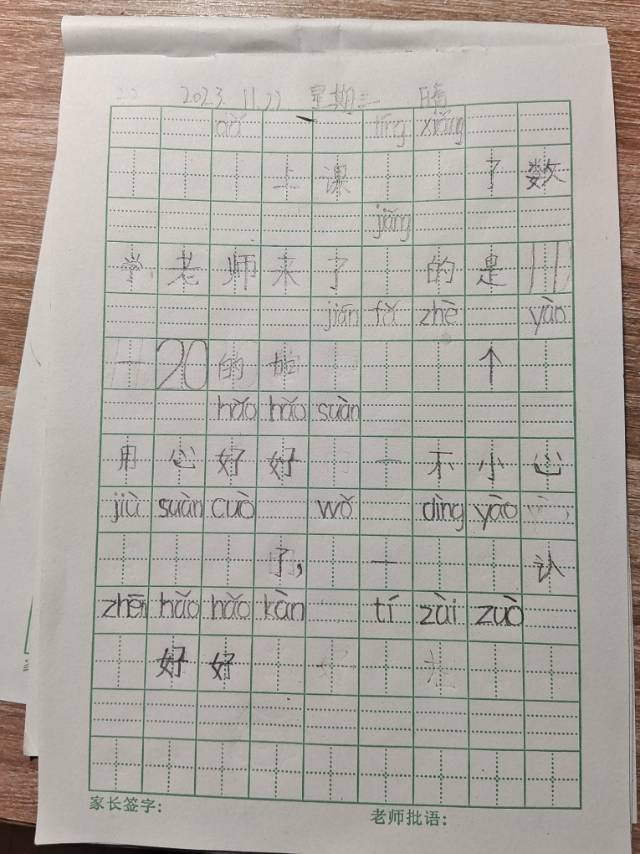 2023 11.22 星期三 晴
dǎ tīng xiǎng
上课 了数
jiǎng
学老师来了 的是
jiān fǎ zhē yàn
20的加 个
hǎo hǎo suàn
用心好好 一不小心
jiù suàn cuò wǒ dìng yào
了, 一 认
zhēn hǎo hǎo kàn tí zài zuò
好好
家长签字: 老师批语: